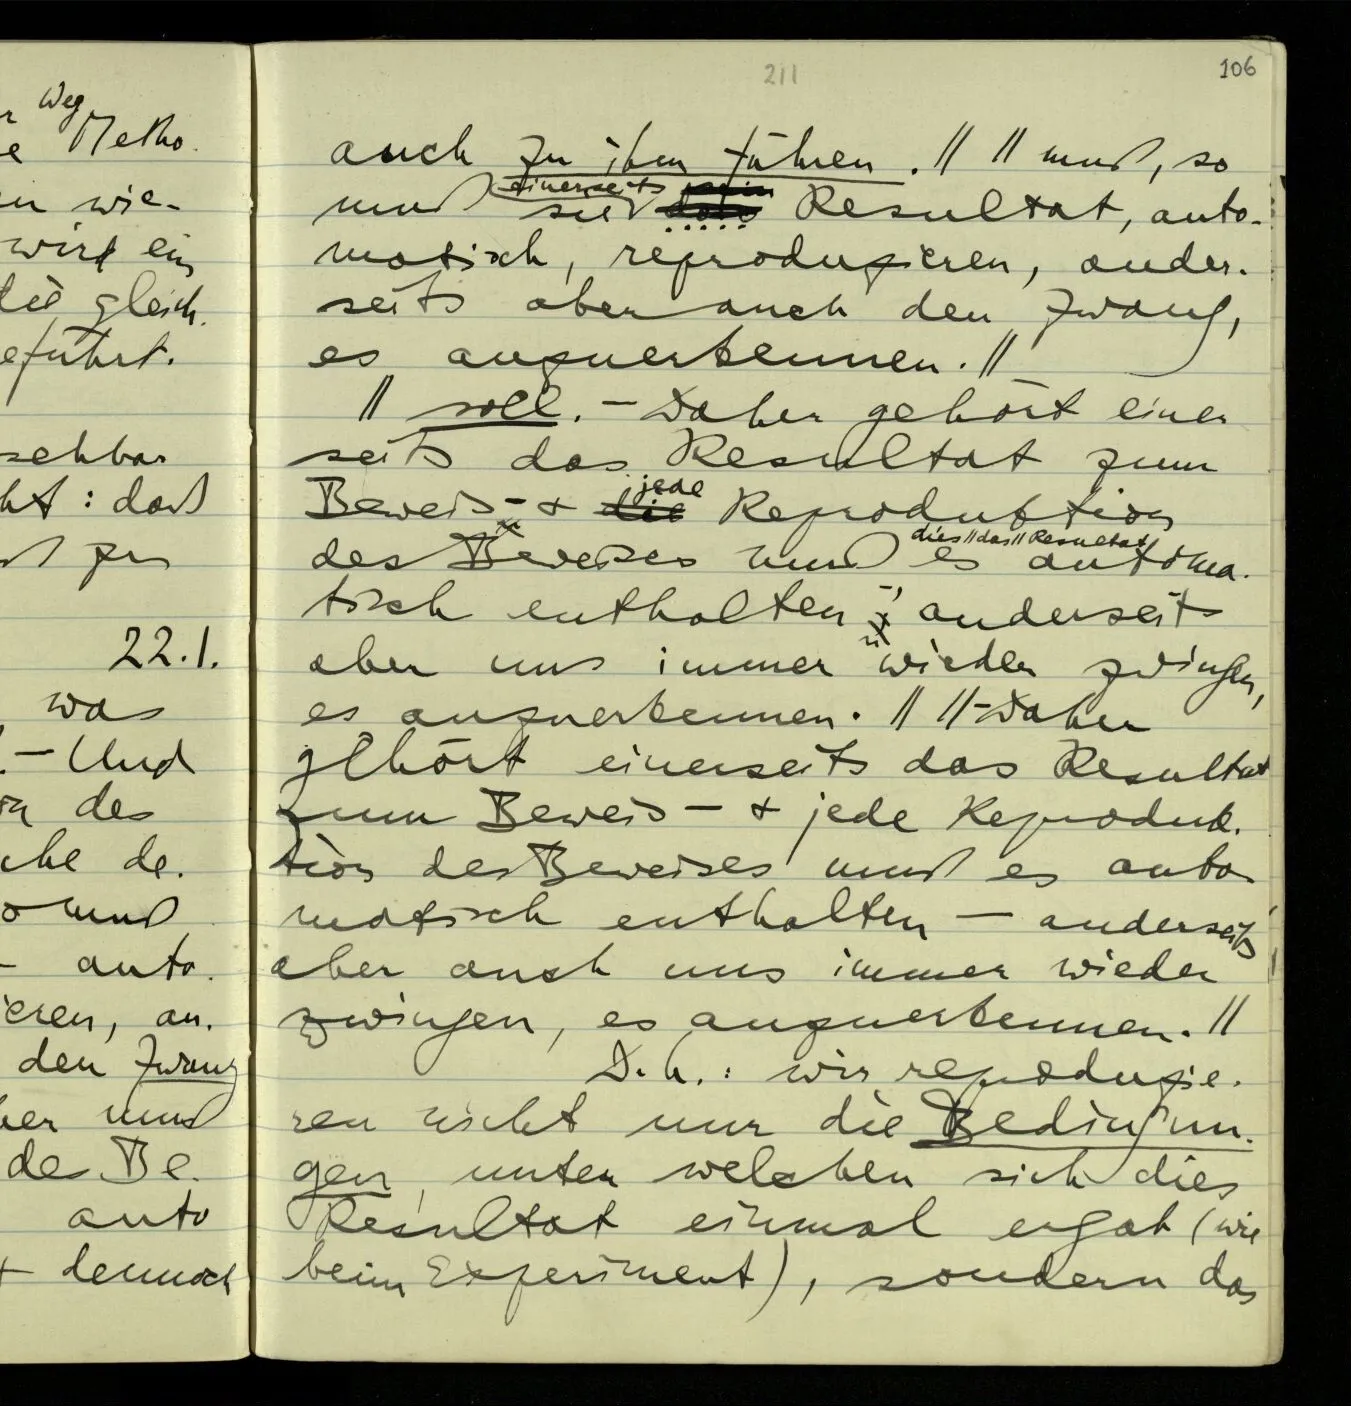 Weg
Metho.
en wie-
wird ein
die gleich.
eführt.
sehbar
ht : daß
22.1.
, was
. – Und
des
che de.
muß
– auto.
ieren, an.
den Zwang
her muß
des Be.
auto
+ dennoch
211
106
auch zu ihm führen . // // muß, so
einerseits
muß sie das Resultat, auto-
matisch, reproduzieren, ander-
seits aber auch den Zwang,
es anzuerkennen. //
// soll. – Daher gehört einer
seits das Resultat zum
jede
Beweis – + die Reproduktion
dies // das // Resultat
des Beweises muß es automa-
tisch enthalten – ; anderseits
aber uns immer wieder zwingen,
es anzuerkennen. // // – Daher
gehört einerseits das Resultat
zum Beweis – + jede Reproduk-
tion des Beweises muß es auto
matisch enthalten – anderseits
aber auch uns immer wieder
zwingen, es anzuerkennen. //
D.h.: wir reproduzie-
ren nicht nur die Bedingun-
gen, unter welchen sich dies
Resultat einmal ergab (wie
beim Experiment), sondern das